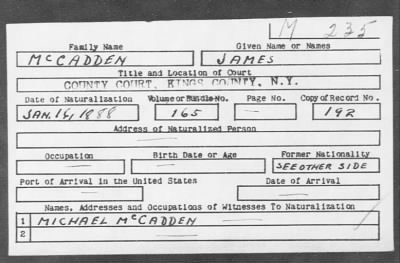 M 235
Family Name Given Name or Names
McCADDEN JAMES
Title and Location of Court
COUNTY COURT, KINGS COUNTY, N.Y.
Date of Naturalization Volume or Bundle No. Page No. Copy of Record No.
JAN. 16, 1888 165 — 192
Address of Naturalized Person
—
Occupation Birth Date or Age Former Nationality
— — SEE OTHER SIDE
Port of Arrival in the United States Date of Arrival
— —
Names, Addresses and Occupations of Witnesses To Naturalization
1 MICHAEL McCADDEN —
2 —